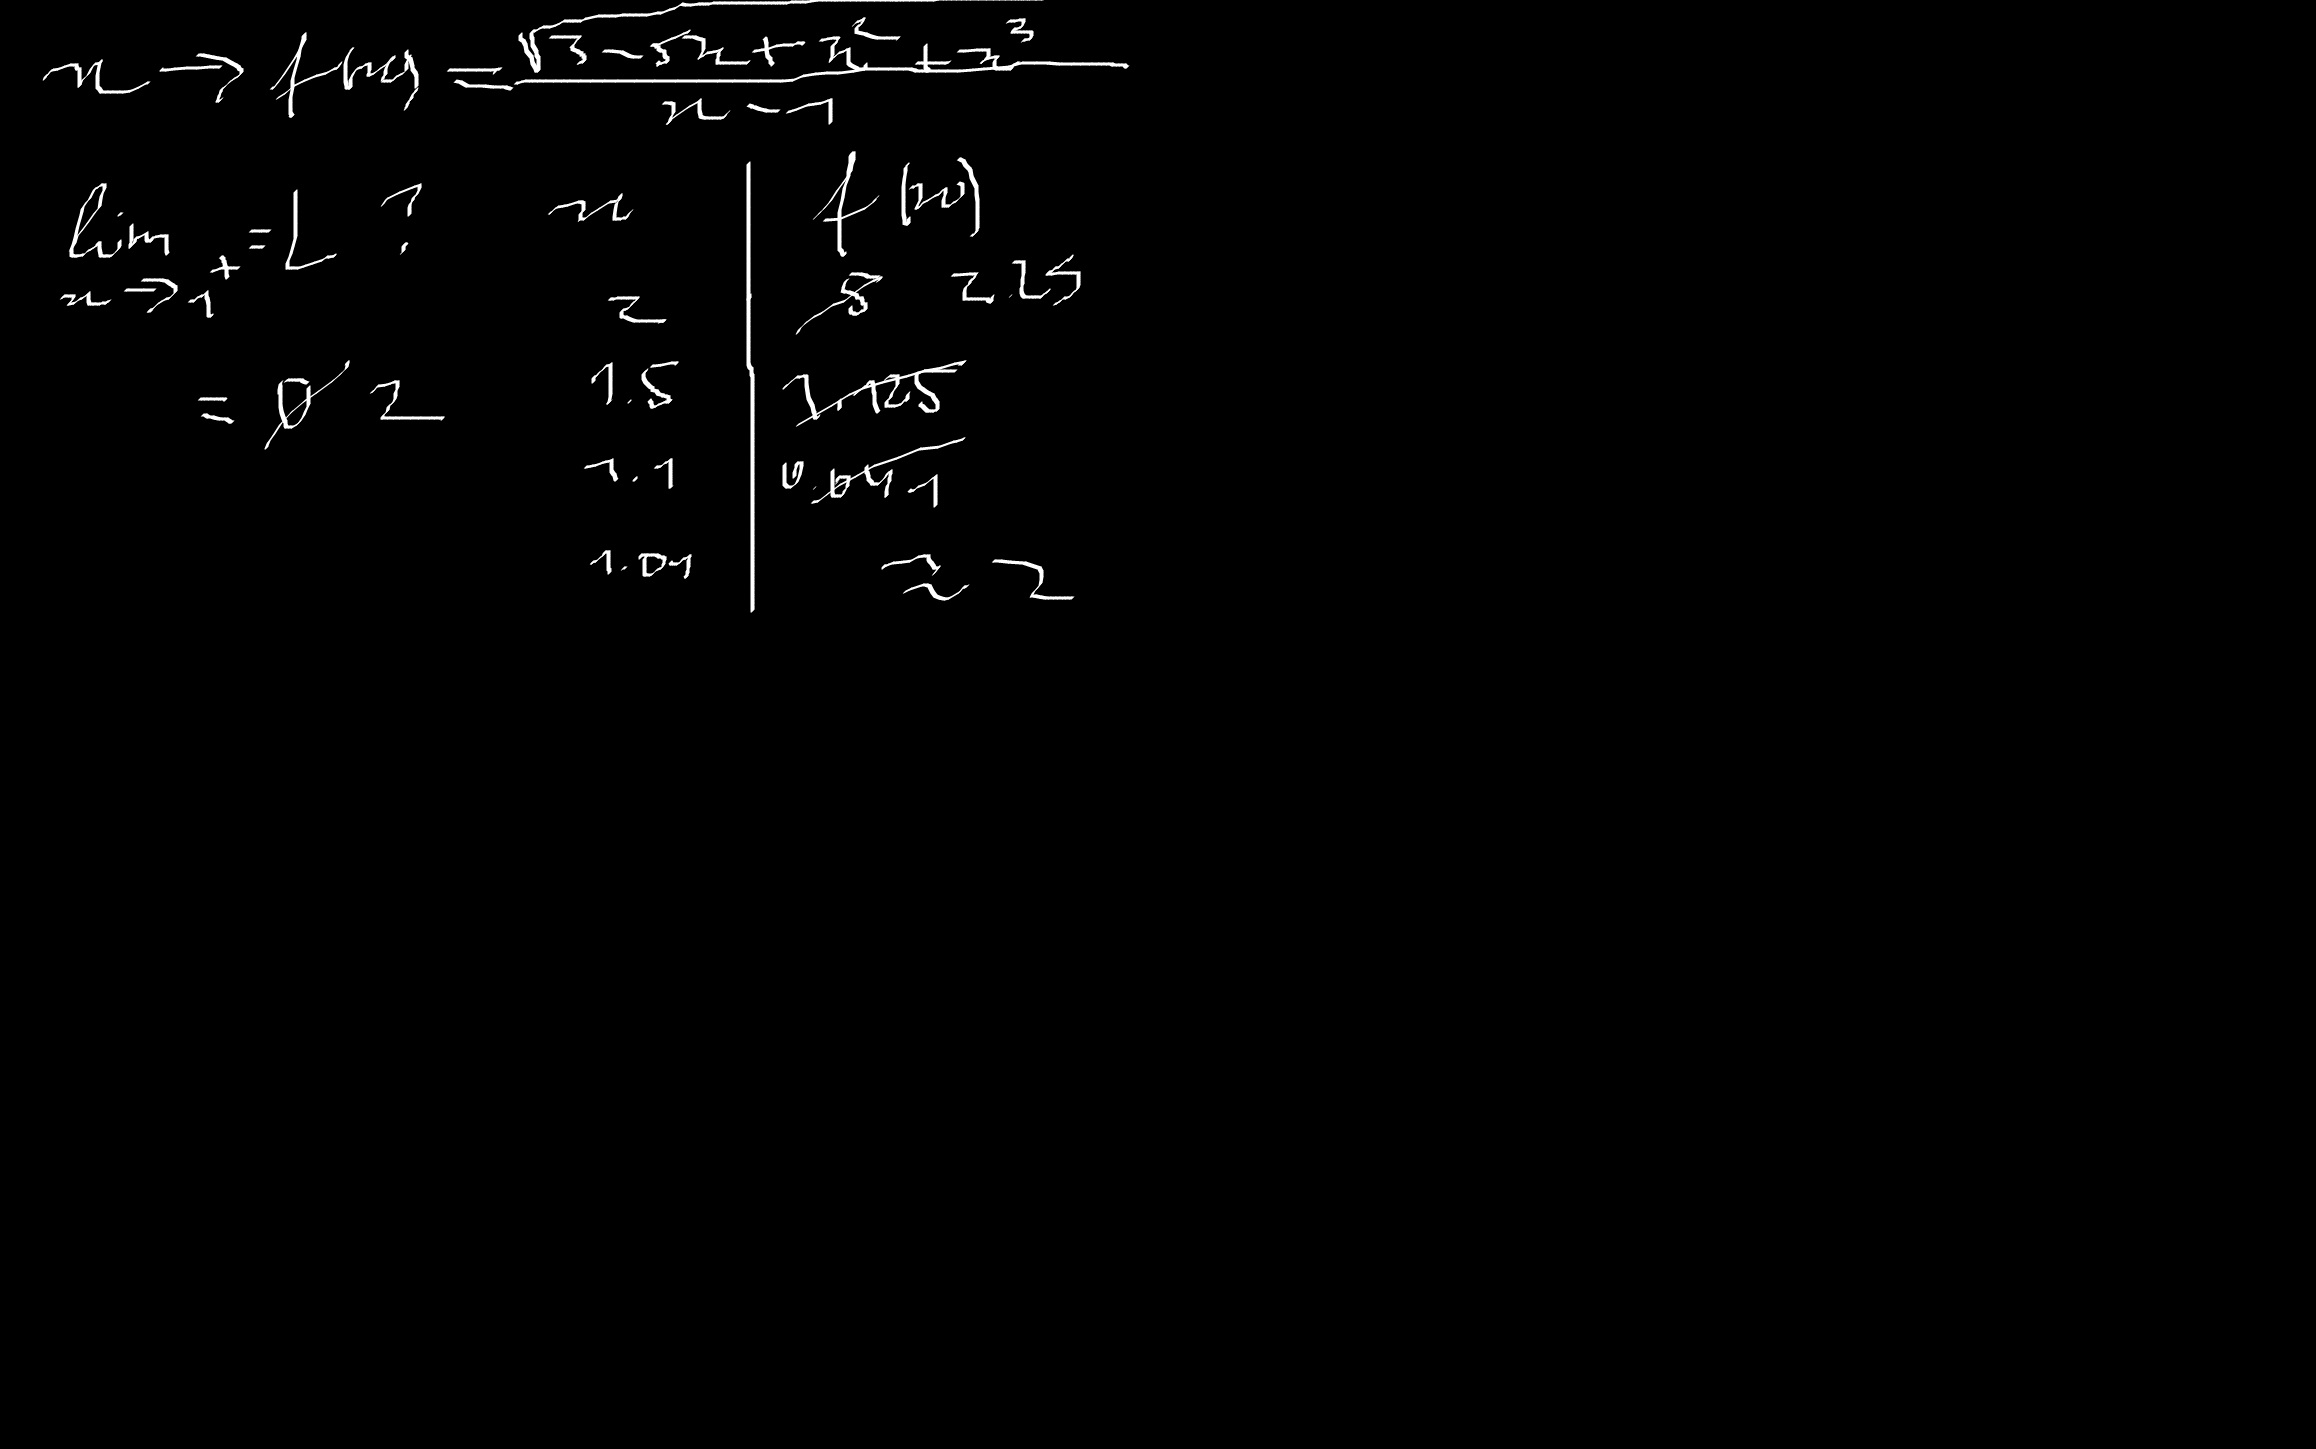 x → f(x) = √(3 - 5x + x² + x³) / (x - 1)
lim x→1⁺ = L ?
= 0 2
x | f(x)
2 | 5 2.25
1.5 | 1.125
1.1 | 0.041
1.01 | ≈ 2